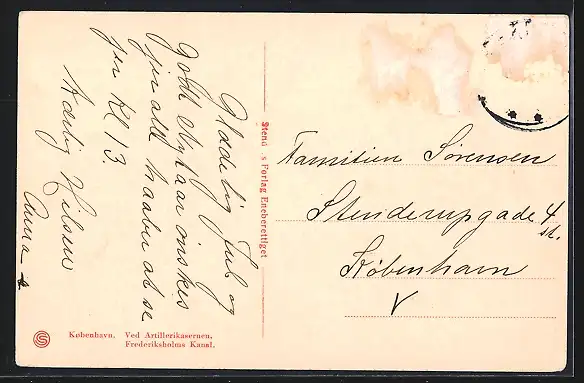 Glædelig Jul og
godt Nytaar ønskes
jer alle haaber at se
jer Kl 13.
Kærlig Hilsen
Anna
Stend s Forlag Eneberettiget
Familien Sørensen
Stenderupgade 4
st.
København
V
København. Ved Artillerikasernen.
Frederiksholms Kanal.